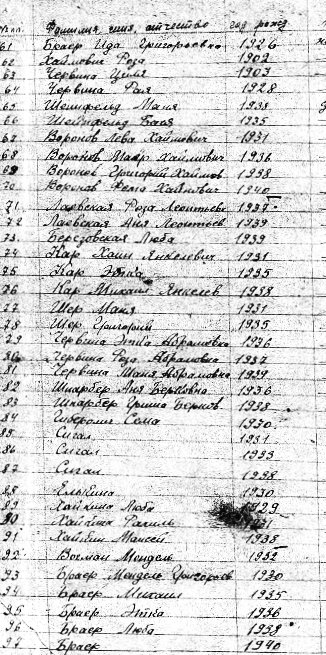 № п.п. Фамилия, имя, отчество год рожд
61 Браер Ида Григорьевна 1926
62 Хаймович Роза 1902
63 Червина Циля 1903
64 Червина Рая 1928
65 Шейнфельд Маня 1938
66 Шейнфельд Баня 1935
67 Воронов Лева Хаймович 1931
68 Воронов Маер Хаймович 1936
69 Воронов Григорий Хаймов 1938
70 Воронов Хаймович 1940
71 Лаевская Роза Леонтьевн 1937
72 Лаевская Аня Леонтьев 1939
73 Березовская Люба 1939
74 Кар Хаим Янкелевич 1931
75 Кар Этка 1935
76 Кар Михаил Янкелев 1938
77 Шер Маня 1931
78 Шер Григорий 1935
79 Червина Этка Абрамовна 1936
80 Червина Роза Абрамовна 1937
81 Червина Маня Абрамовна 1939
82 Шнарбер Аня Берковна 1936
83 Шнарбер Гриша Берков 1938
84 Сема 1930
85 Сигал 1931
86 Сигал 1933
87 Сигал 1938
88 Елькина 1930
89 Хайкина Люба 1929
90 Хайкина Рахиль 1931
91 Хайкин Максей 1938
92 Восман Мендель 1932
93 Браер Мендель Григорьев 1930
94 Браер Михаил 1935
95 Браер Этка 1936
96 Браер Люба 1938
97 Браер 1940